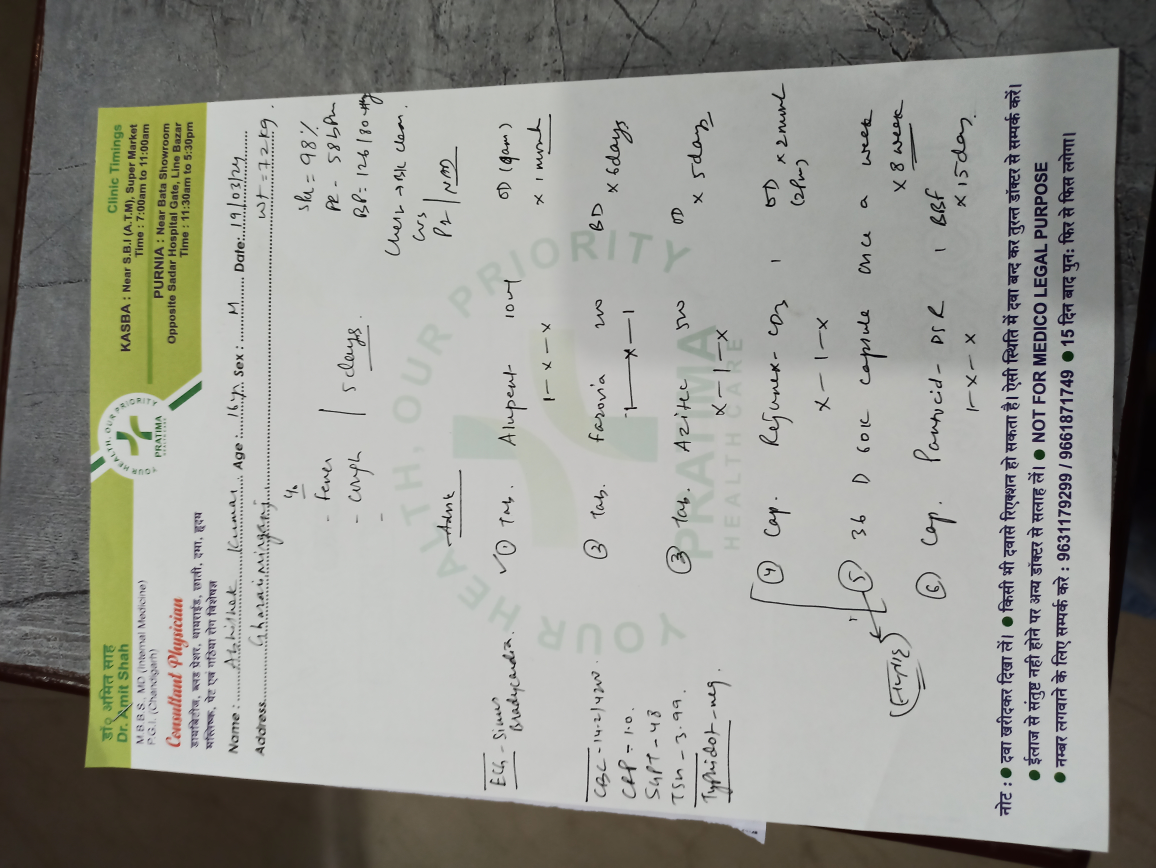 डॉ० अमित साह
Dr. Amit Shah
M.B.B.S., MD (Internal Medicine)
P.G.I. (Chandigarh)
Consultant Physician
डायबिटीज, ब्लड प्रेशर, थायराईड, छाती, दमा, हृदय
मस्तिष्क, पेट एवं गठिया रोग विशेषज्ञ
YOUR HEALTH, OUR PRIORITY
PRATIMA
Clinic Timings
KASBA : Near S.B.I (A.T.M), Super Market
Time : 7:00am to 11:00am
PURNIA : Near Bata Showroom
Opposite Sadar Hospital Gate, Line Bazar
Time : 11:30am to 5:30pm
Name : Abhishek Kumar Age : 16 Sex : M Date: 19/03/24
Address
WT = 72 kg.
c/o
- Fever
- Cough | 5 days.
PR - 58 bpm
BP = 124/80
Chest → B/L clear.
CVS
PA | NAD
Advise
ECG - Sinus
Bradycardia.
CRP - 10.
SGPT - 48
TSH - 3.99.
Typhidot - neg
① Tab. Alupent 10mg OD (9am)
1 - x - x x 1 month
② Tab. Farovia 200 BD x 6 days
1 - x - 1
③ Tab. Azitec 500 OD x 5 days
x - 1 - x
④ Cap. Rejunex-CD3 1 OD x 2 month
x - 1 - x (2pm)
⑤ D 60K capsule once a week
x 8 week
⑥ Cap. Pantocid-DSR 1 BBF
1 - x - x x 15 day.
YOUR HEALTH, OUR PRIORITY
PRATIMA
HEALTHCARE
नोट : ● दवा खरीदकर दिखा लें। ● किसी भी दवासे रिएक्शन हो सकता है। ऐसी स्थिति में दवा बन्द कर तुरन्त डॉक्टर से सम्पर्क करें।
● ईलाज से संतुष्ट नही होने पर अन्य डॉक्टर से सलाह लें। ● NOT FOR MEDICO LEGAL PURPOSE
● नम्बर लगवाने के लिए सम्पर्क करे : 9631179299 / 9661871749 ● 15 दिन बाद पुन: फिर से फिस लगेगा।